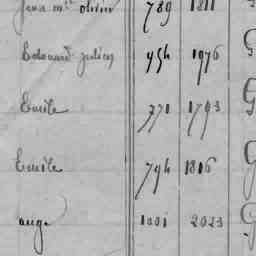 Jean Mie olivier 789 1811
Edouard julien 954 1976 G
Emile 771 1793 G
Emile 794 1816 G
ange 1001 2023 G